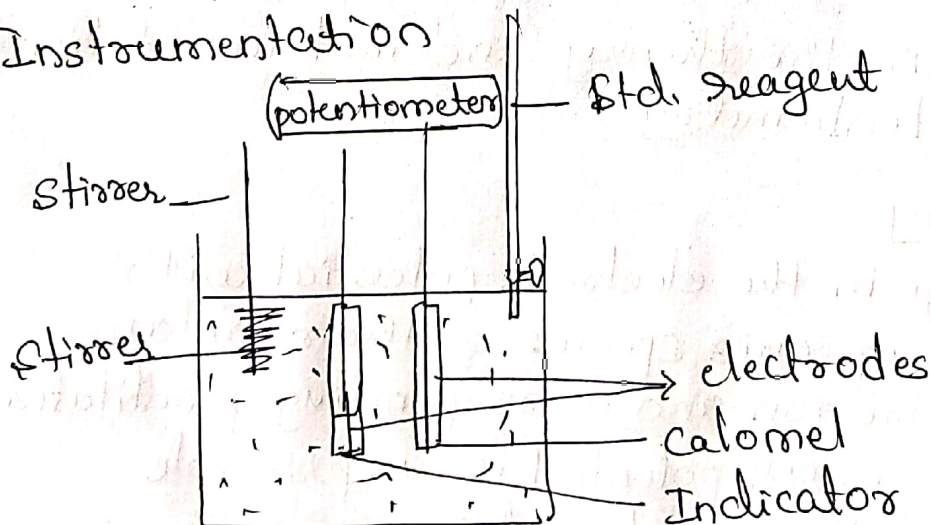 Instrumentation
potentiometer
Std. reagent
Stirrer
Stirrer
electrodes
Calomel
Indicator